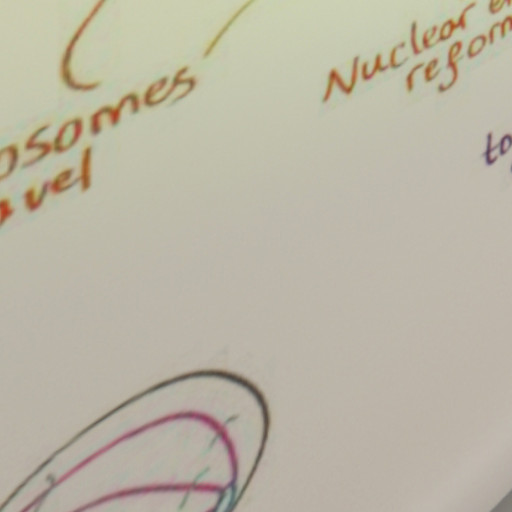 osomes
avel
Nuclear e
reform
to